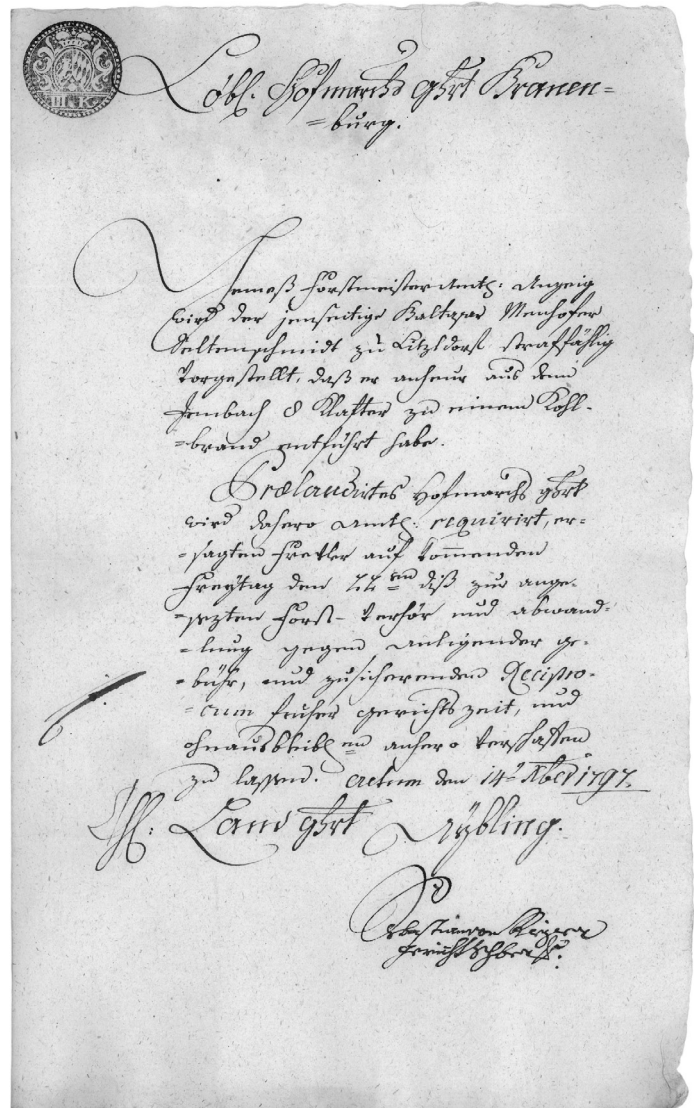 III K
Löbl. Hofmarchs ghrt Branen=
=burg.
Gemeß Forstmeisteramtl: Anzeig
wird der jenseitige Baltasar Menhofer
Seltenschmidt zu Litzldorf straffählig
Vorgestellt, daß er anheur aus dem
Jenbach 8 Klafter zu einem Kohl-
=brand entführt habe.
Prælaudirtes Hofmarchs ghrt
wird dahero amtl: requirirt, er-
=sagten Frevler auf kommenden
Freytag den 22ten diß zur ange-
=sezten Forst-Verhör und abwand-
=lung gegen anligender ge-
=bühr, und zusicherenden Recipro-
=cum früher gerichts zeit, und
ohnausbleiblen anhero verschaffen
zu lassen. Actum den 14t Xber 1797.
Chl: Land ghrt Aybling.
Sebastian
Gerichtschbr: